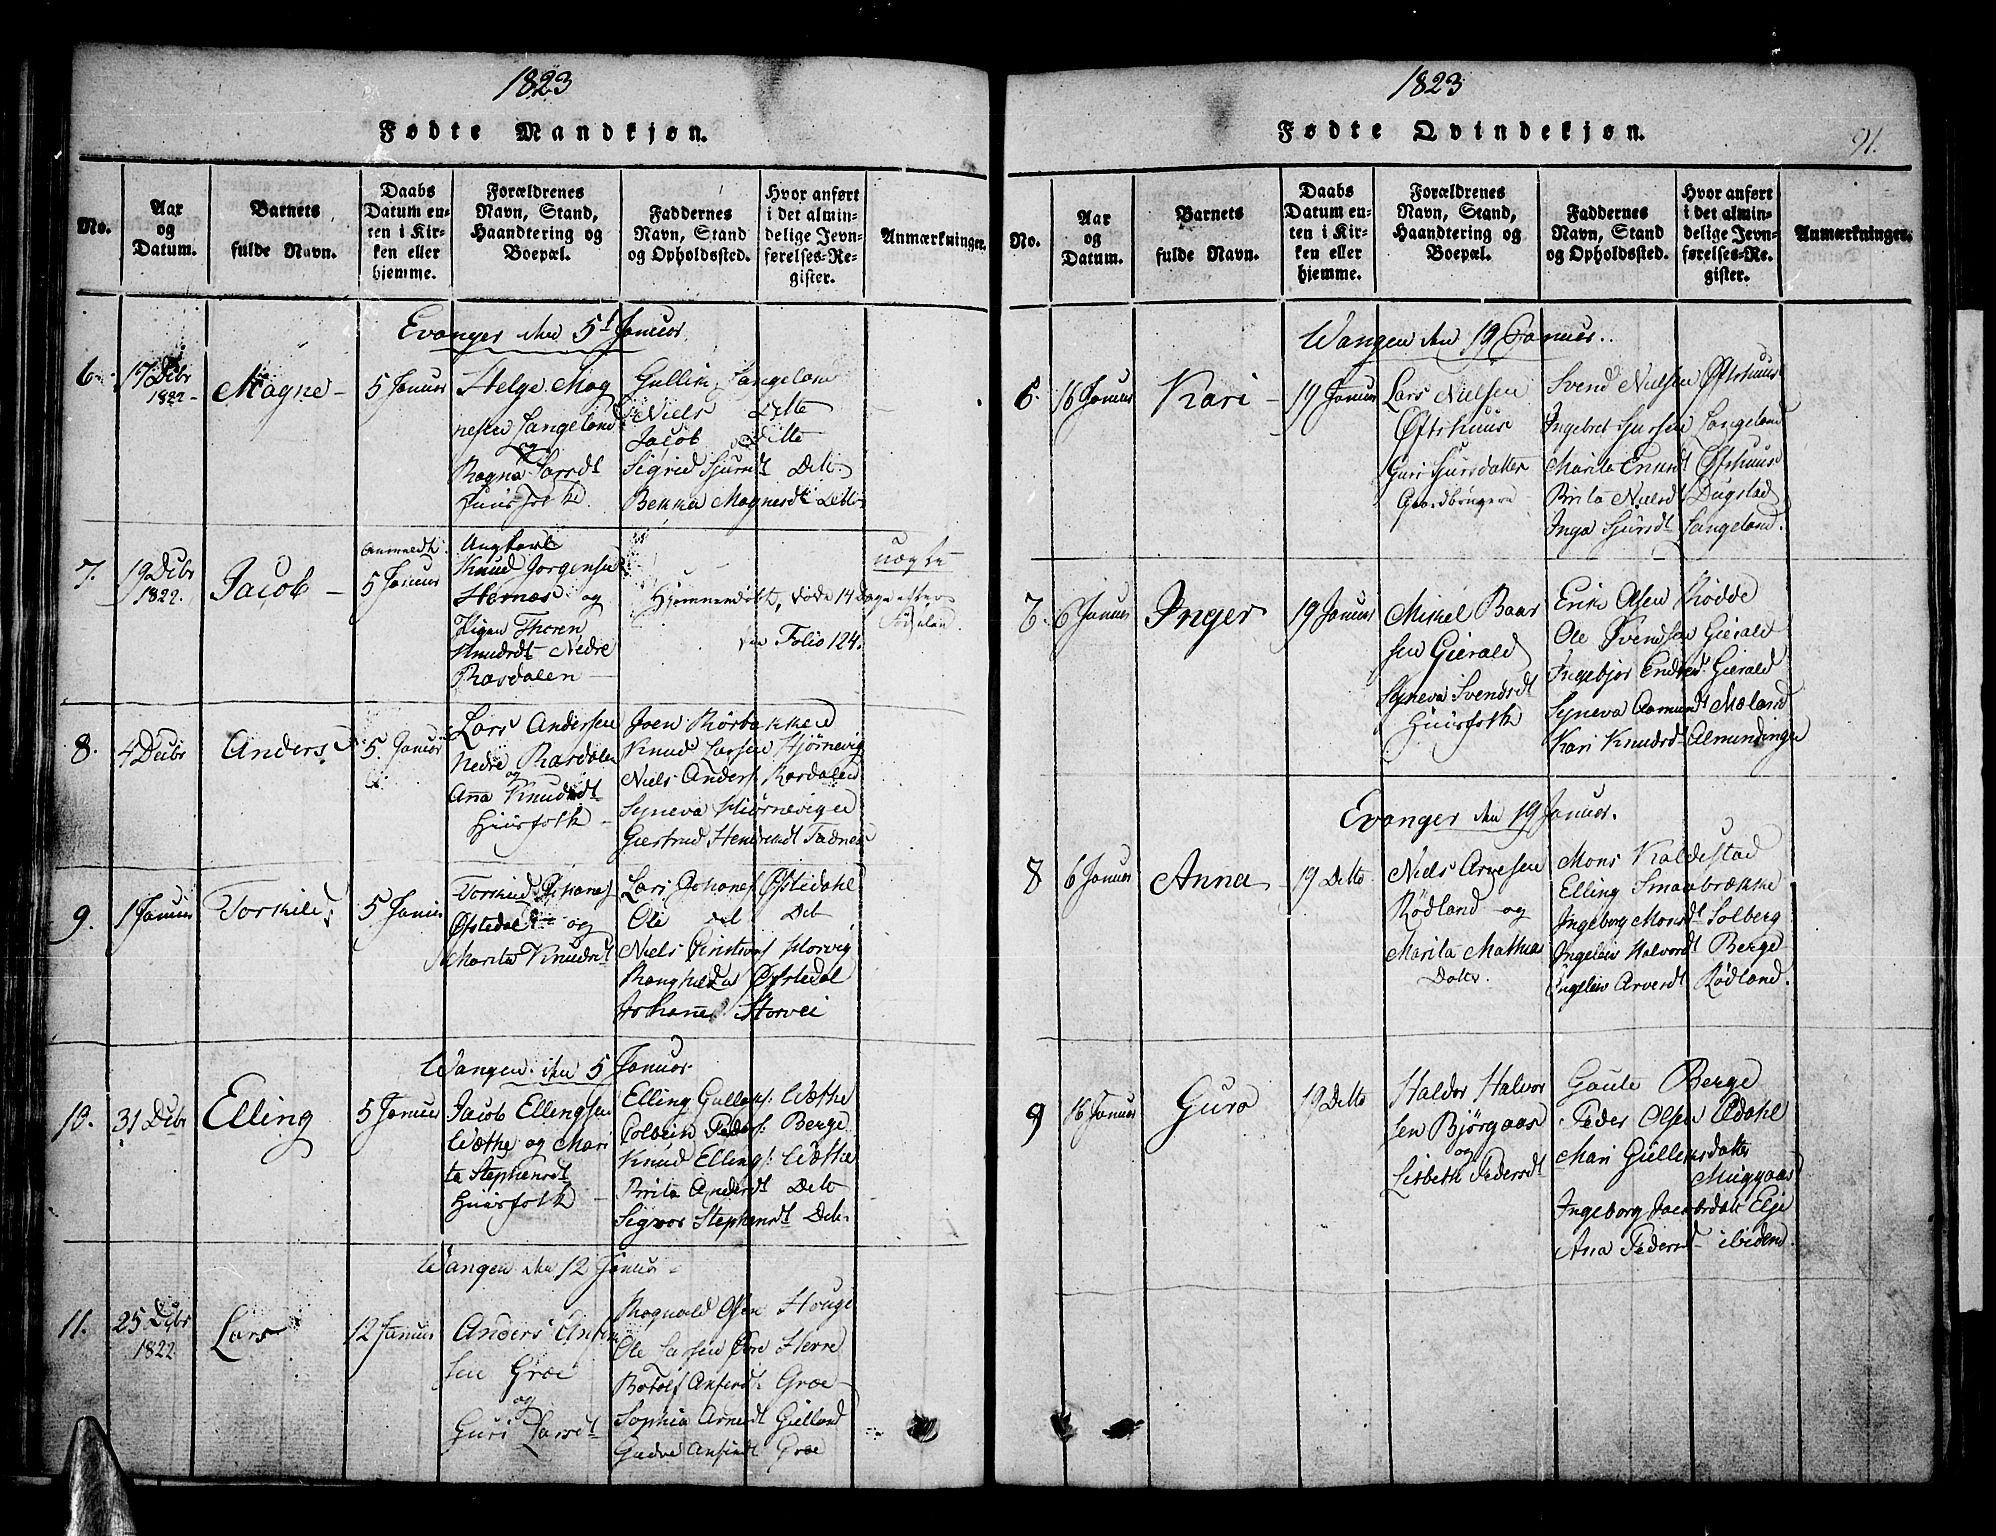 1823
Fødte Mandkjøn.
No.
Aar
og
Datum.
Barnets
fulde Navn.
Daabs
Datum en-
ten i Kir-
ken eller
hjemme.
Forældrenes
Navn, Stand,
Haandtering og
Boepæl.
Faddernes
Navn, Stand
og Opholdssted.
Hvor anført
i det almin-
delige Jevn-
førelses-Re-
gister.
Anmærkninger.
Evanger den 5t Januar.
6.
17 Debr
1822
Magne
5 Januar
Helge Mag
nesen Langeland
og
Ragna Larsdt
Huusfolke.
Gullik Langeland
Niels Ditto
Jacob Ditto
Sigrid Sjursdt Dito
Magnesdt Ditto
7.
19 Debr
1822.
Jacob
anmeldt
5 Januar
Ungkarl
Knud Jorgensen
Hernæs og
Pigen Thoren
Knudsdt Nedre
Rasdalen
Hjemmedøbt, døde 14 Dage efter
Fødselen
Folio 124.
uægte
8.
4 Debr
Anders
5 Januar
Lars Andersen
Nedre Rasdalen
og
Anna Knudsdt
Huusfolk
Joen Rörbakken
Knud Larsen Hjørnevig
Niels Anders. Rasdalen
Synneva Hiörnevigen
Giertrud
9.
1 Januar
Torkild
5 Januar
Torkild Johanes
Øfstedal og
Marita Knudsdt
Lars Johanes Øfstedahl
Ole Dit
Niels Horvig
Ranghilda Øfstedal
Johannes Horvei
Wangen den 5 Januar
10.
31 Debr
Elling
5 Januar
Jacob Ellingsen
Wæthe og Mari
ta Stephensdt
Huusfolk
Elling Gulleks. Wæthe
Colbein Peders. Berge
Knud Ellings. Wæthe
Brita Andersdt Dito
Sigvor Stephensdt Dito
Wangen den 12 Januar
11.
25 Debr
1822
Lars
12 Januar
Anders Anfin
sen Græe
og
Guri Larsdt
Rognald Olsen Houge
Ole Larsen Herre
Botolf Anfindt Græe
Sophia Arnesdt Gielland
Anfindt Græe
1823
91.
Fødte Qvindekjøn.
No.
Aar
og
Datum.
Barnets
fulde Navn.
Daabs
Datum en-
ten i Kir-
ken eller
hjemme.
Forældrenes
Navn, Stand,
Haandtering og
Boepæl.
Faddernes
Navn, Stand
og Opholdssted.
Hvor anført
i det almin-
delige Jevn-
førelses-Re-
gister.
Anmærkninger.
Wangen den 19 Januar.
6.
16 Januar
Kari
19 Januar
Lars Nielsen
Øfsthuus
Guri Sjursdatter
Gaardbrugere
Svend Nielsen Øfsthuus
Ingebret Sjursen Langeland
Marita Øfsthuus
Brita Nielsdt Dugstad
Inga Sjursdt Langeland.
7.
6 Januar
Inger
19 Januar
Mikel Baar
sen Gierald
Synneva Svendsdt
Huusfolk
Erik Olsen Rødde
Ole Svendsen Gierald
Ingebjor Endresd. Gierald
Synneva Aamundt Mæland
Kari Knudsd. Almundinge
Evanger den 19 Januar.
8
6 Januar
Anna
19 Ditto
Niels Arvesen
Rødland og
Marita Mathias
Dater.
Mons Kaldestad
Elling Smaabrække
Ingeborg Monsdt Solberg
Ingeleiv Halvordt Berge
Ingeleiv Arvesdt Rødland.
9
16 Januar
Guro
19 Ditto
Haldor Halvor
sen Bjørgaas
og
Lisbeth Pedersdt
Gaute Berge
Peder Olsen Eldahl
Mari Gulleiksdatter
Muggaas
Ingeborg Jacobsdatr Elje
Ana Pedersdt ibidend.